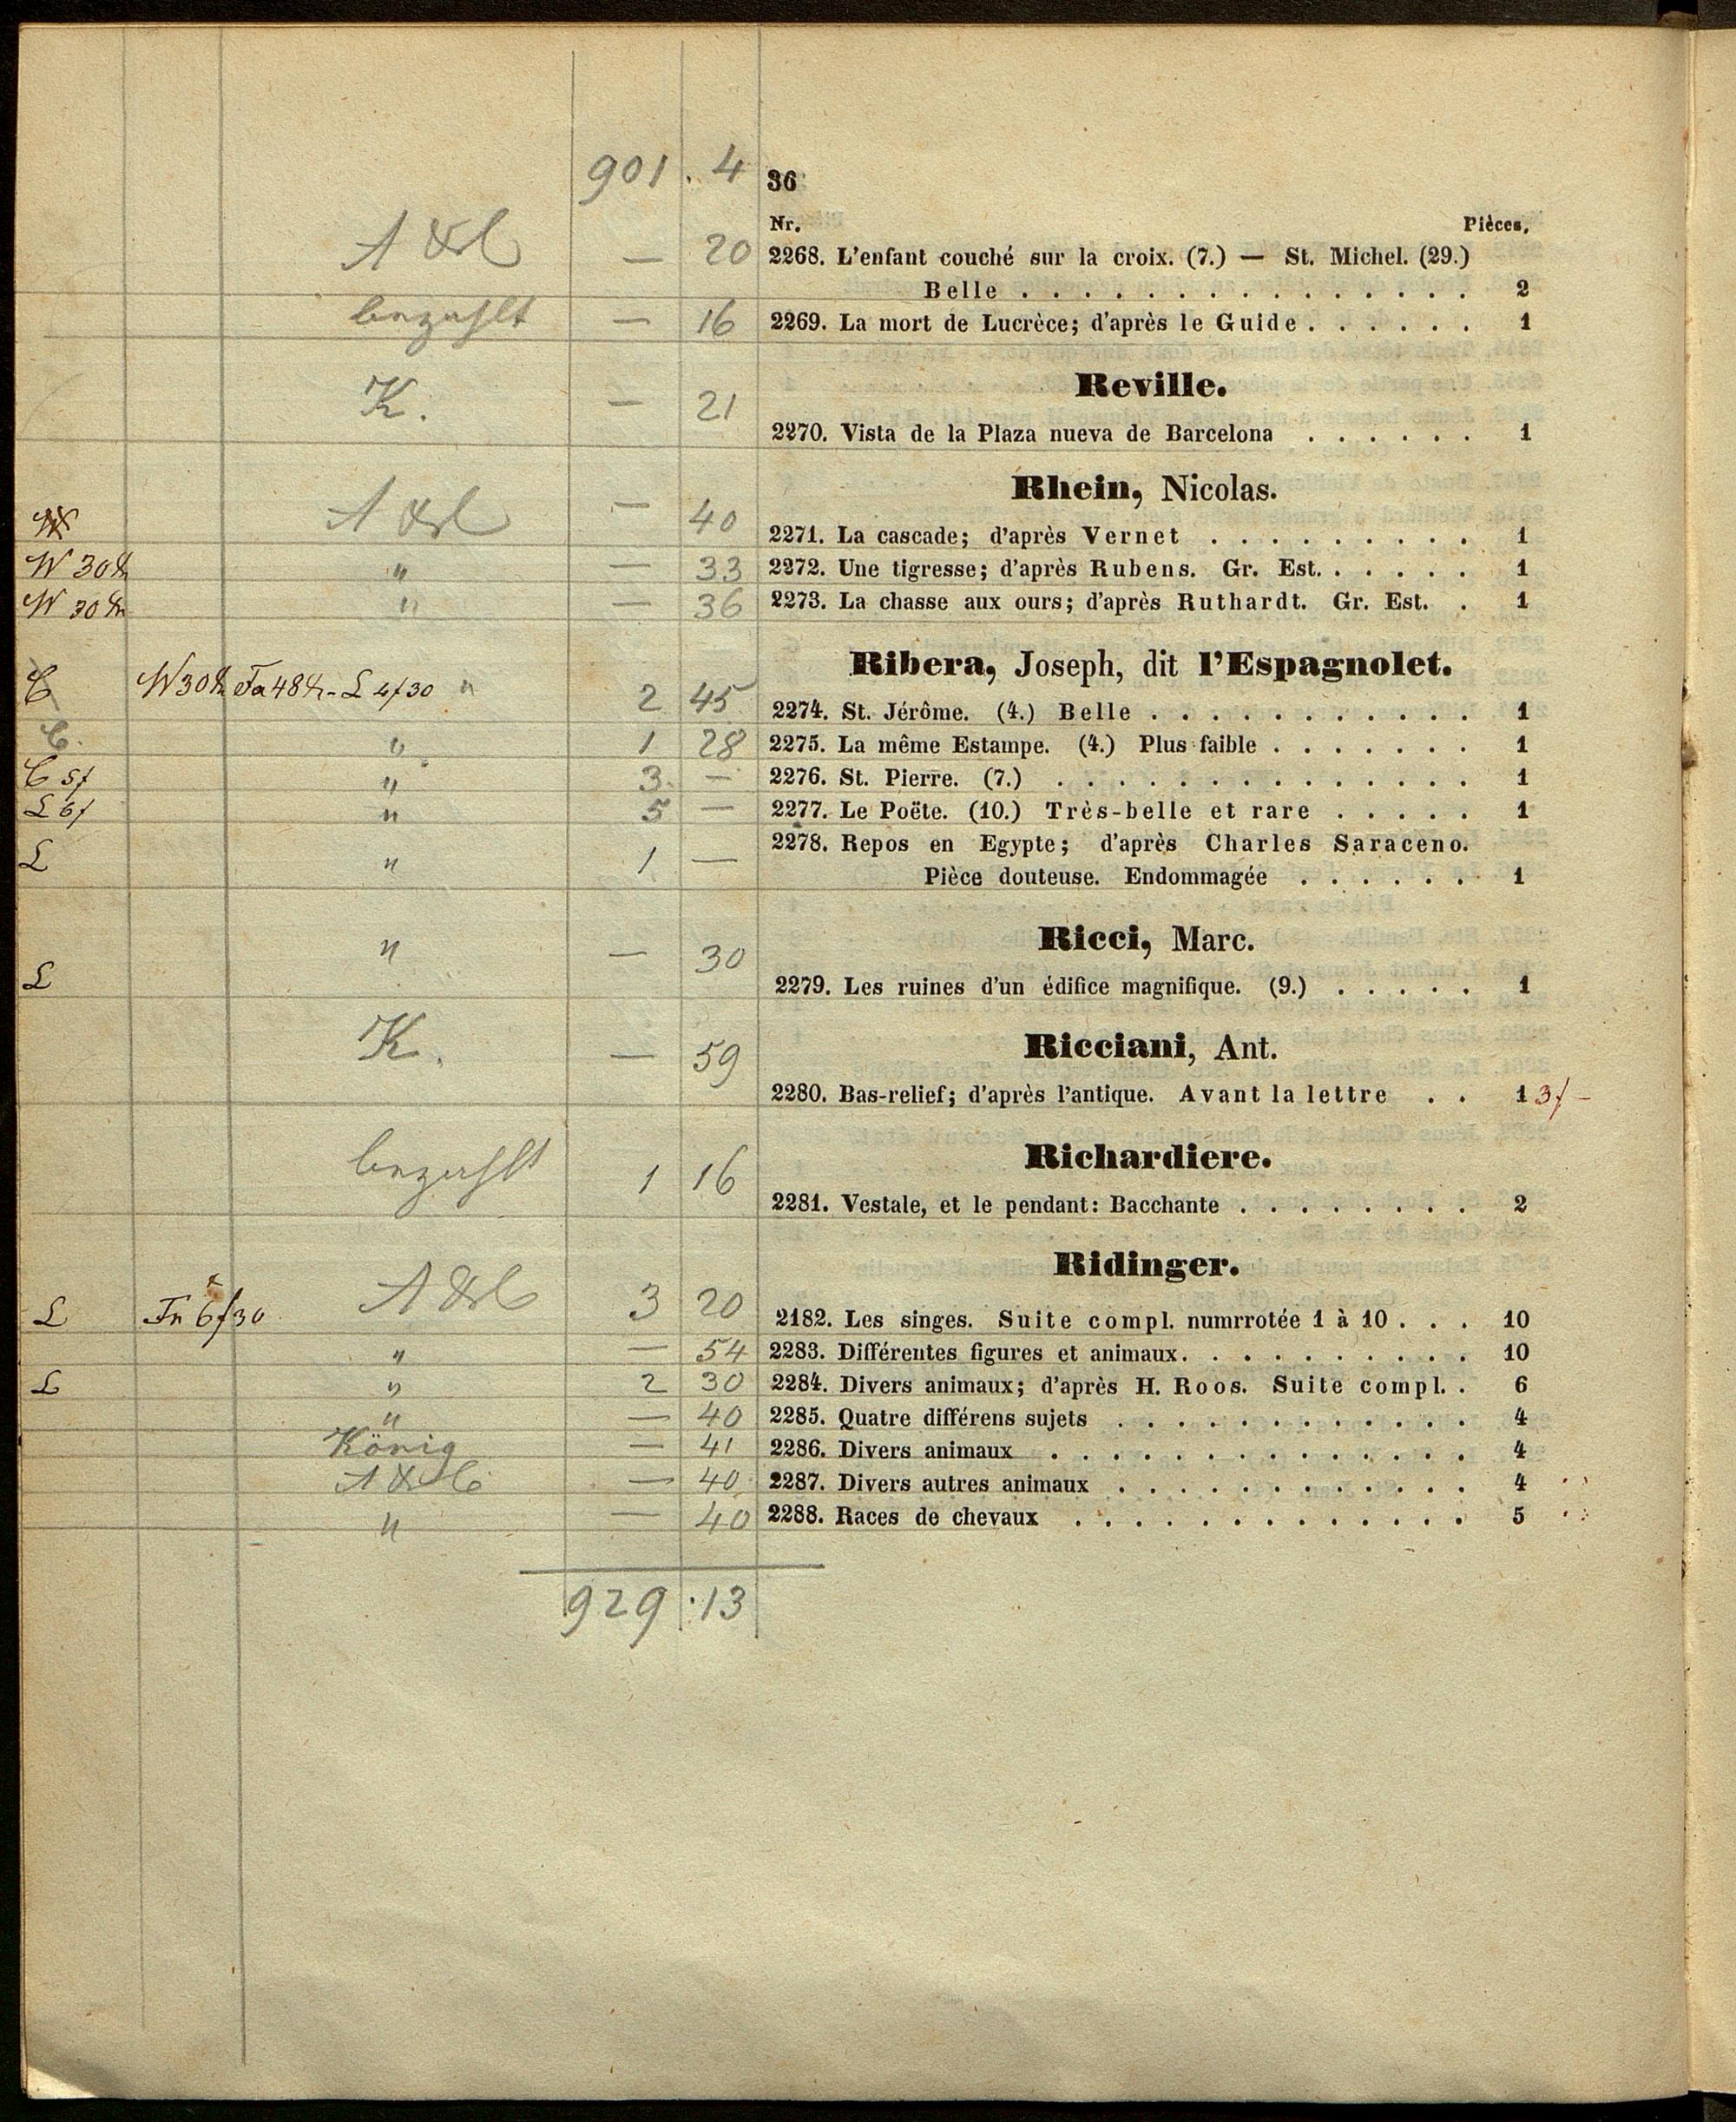 901 . 4 36
Nr. Pièces.
— 20 2268. L'enfant couché sur la croix. (7.) — St. Michel. (29.)
Belle . . . . . . . . . . . . . . . 2
bezahlt — 16 2269. La mort de Lucrèce; d'après le Guide . . . . . . 1
Reville.
K. — 21
2270. Vista de la Plaza nueva de Barcelona . . . . . . 1
Rhein, Nicolas.
— 40
2271. La cascade; d'après Vernet . . . . . . . . . 1
W 30 " — 33 2272. Une tigresse; d'après Rubens. Gr. Est. . . . . . 1
W 30 " — 36 2273. La chasse aux ours; d'après Ruthardt. Gr. Est. . 1
Ribera, Joseph, dit l'Espagnolet.
W 30 48 - L 4f30 " 2 45
2274. St. Jérôme. (4.) Belle . . . . . . . . . . . 1
" 1 28 2275. La même Estampe. (4.) Plus faible . . . . . . . 1
5f " 3 — 2276. St. Pierre. (7.) . . . . . . . . . . . . . . 1
L 6f " 5 — 2277. Le Poëte. (10.) Très-belle et rare . . . . . 1
L " 1 — 2278. Repos en Egypte; d'après Charles Saraceno.
Pièce douteuse. Endommagée . . . . . . 1
Ricci, Marc.
" — 30
L 2279. Les ruines d'un édifice magnifique. (9.) . . . . . 1
Ricciani, Ant.
K. — 59
2280. Bas-relief; d'après l'antique. Avant la lettre . . 1 3f -
Richardiere.
bezahlt 1 16
2281. Vestale, et le pendant: Bacchante . . . . . . . . 2
Ridinger.
L 6f30 3 20
2182. Les singes. Suite compl. numrrotée 1 à 10 . . . 10
" — 54 2283. Différentes figures et animaux. . . . . . . . . . 10
L " 2 30 2284. Divers animaux; d'après H. Roos. Suite compl. . 6
" — 40 2285. Quatre différens sujets . . . . . . . . . . . . 4
König — 41 2286. Divers animaux . . . . . . . . . . . . . . 4
— 40 2287. Divers autres animaux . . . . . . . . . . . . 4
" — 40 2288. Races de chevaux . . . . . . . . . . . . . 5
929 . 13